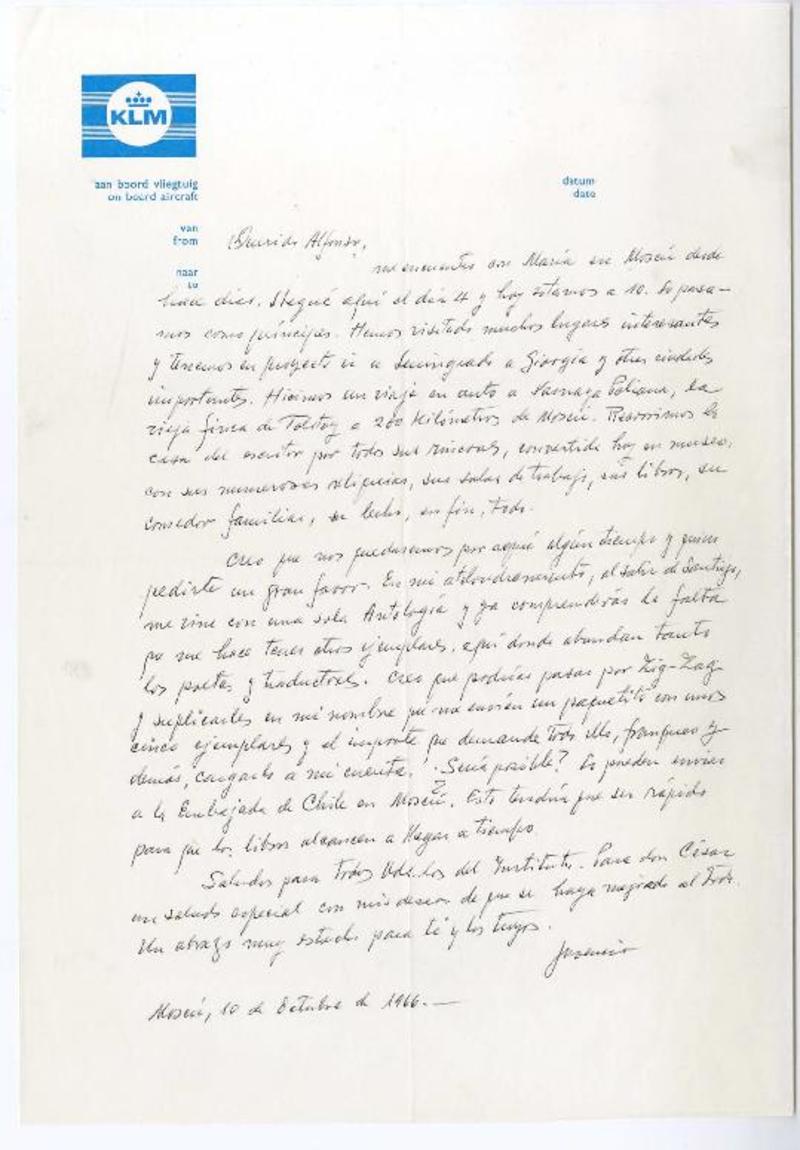 KLM
aan boord vliegtuig
on board aircraft
datum
date
van
from
naar
to
Querido Alfonso,
me encuentro con María en Moscú desde
hace días. Llegué aquí el día 4 y hoy estamos a 10. Lo pasa-
mos como príncipes. Hemos visitado muchos lugares interesantes
y tenemos en proyecto ir a Leningrado a Giorgia y otras ciudades
importantes. Hicimos un viaje en auto a Iasnaya Poliana, la
vieja finca de Tolstoy a 200 Kilómetros de Moscú. Recorrimos la
casa del escritor por todos sus rincones, convertida hoy en museo,
con sus numerosas reliquias, sus salas de trabajo, sus libros, su
comedor familiar, su lecho, en fin, todo.
Creo que nos quedaremos por aquí algún tiempo y quiero
pedirte un gran favor. En mi atolondramiento, al salir de Santiago,
me vine con una sola Antología y ya comprenderás la falta
que me hace tener otros ejemplares, aquí donde abundan tanto
los poetas y traductores. Creo que podrías pasar por Zig-Zag
y suplicarles en mi nombre que me envíen un paquetito con unos
cinco ejemplares y el importe que demande todo ello, franqueo y
demás, cargarlo a mi cuenta. ¿Sería posible? Lo pueden enviar
a la Embajada de Chile en Moscú. Esto tendría que ser rápido
para que los libros alcancen a llegar a tiempo.
Saludos para todos Uds. los del Instituto. Para don César
un saludo especial con mis deseos de que se haya mejorado del todo.
Un abrazo muy estrecho para ti y los tuyos.
Juvencio
Moscú, 10 de Octubre de 1966.—